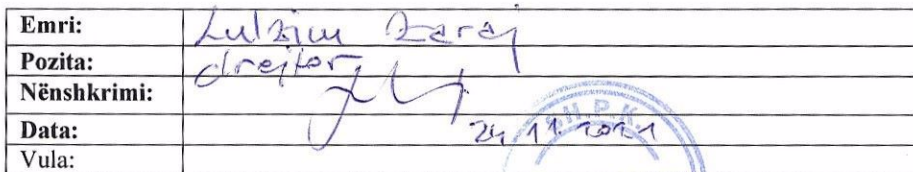 Emri: Lulzim Zeraj
Pozita: drejtor
Nënshkrimi:
Data: 24 11 2021
Vula:
SH.P.K.